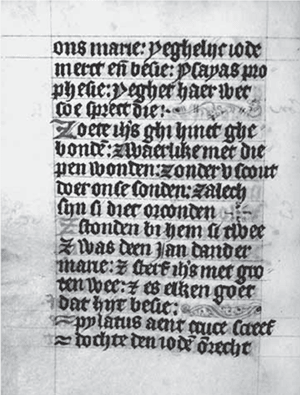 ons marie: yeghelijc iode
merct en̄ besie: ysayas pro
phesie: yeghet haer wet
soe sprect die:
Zoete ih̄s ghi hinct ghe
bondē: zwaerlike met die
pen wonden: zonder v scout
voer onse sonden: zalech
syn si diet orconden
Z stonden bi hem si twee
Z was deen Jan dander
marie: z sterf ih̄s met gro
ten wee: z es elken goet
dat hyt besie:
pylatus aent cruce screef
dochte den iodē ōrecht